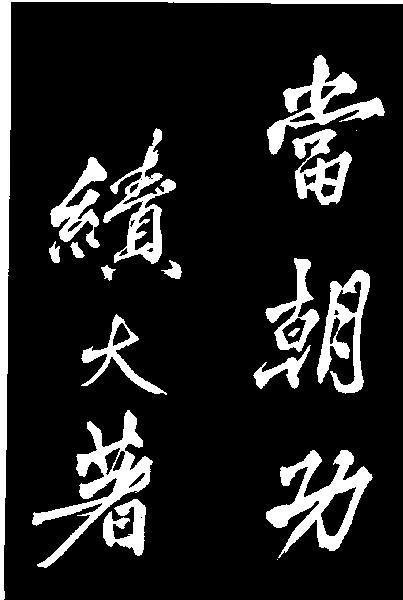 當朝功
績大著